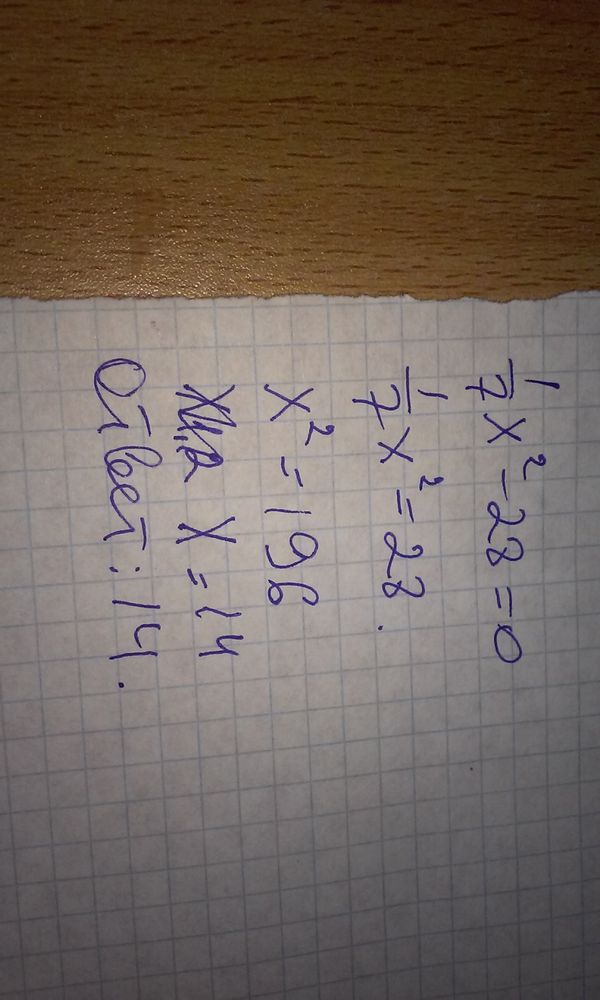 1/7 x² - 28 = 0
1/7 x² = 28.
x² = 196
x = 14
Ответ: 14.